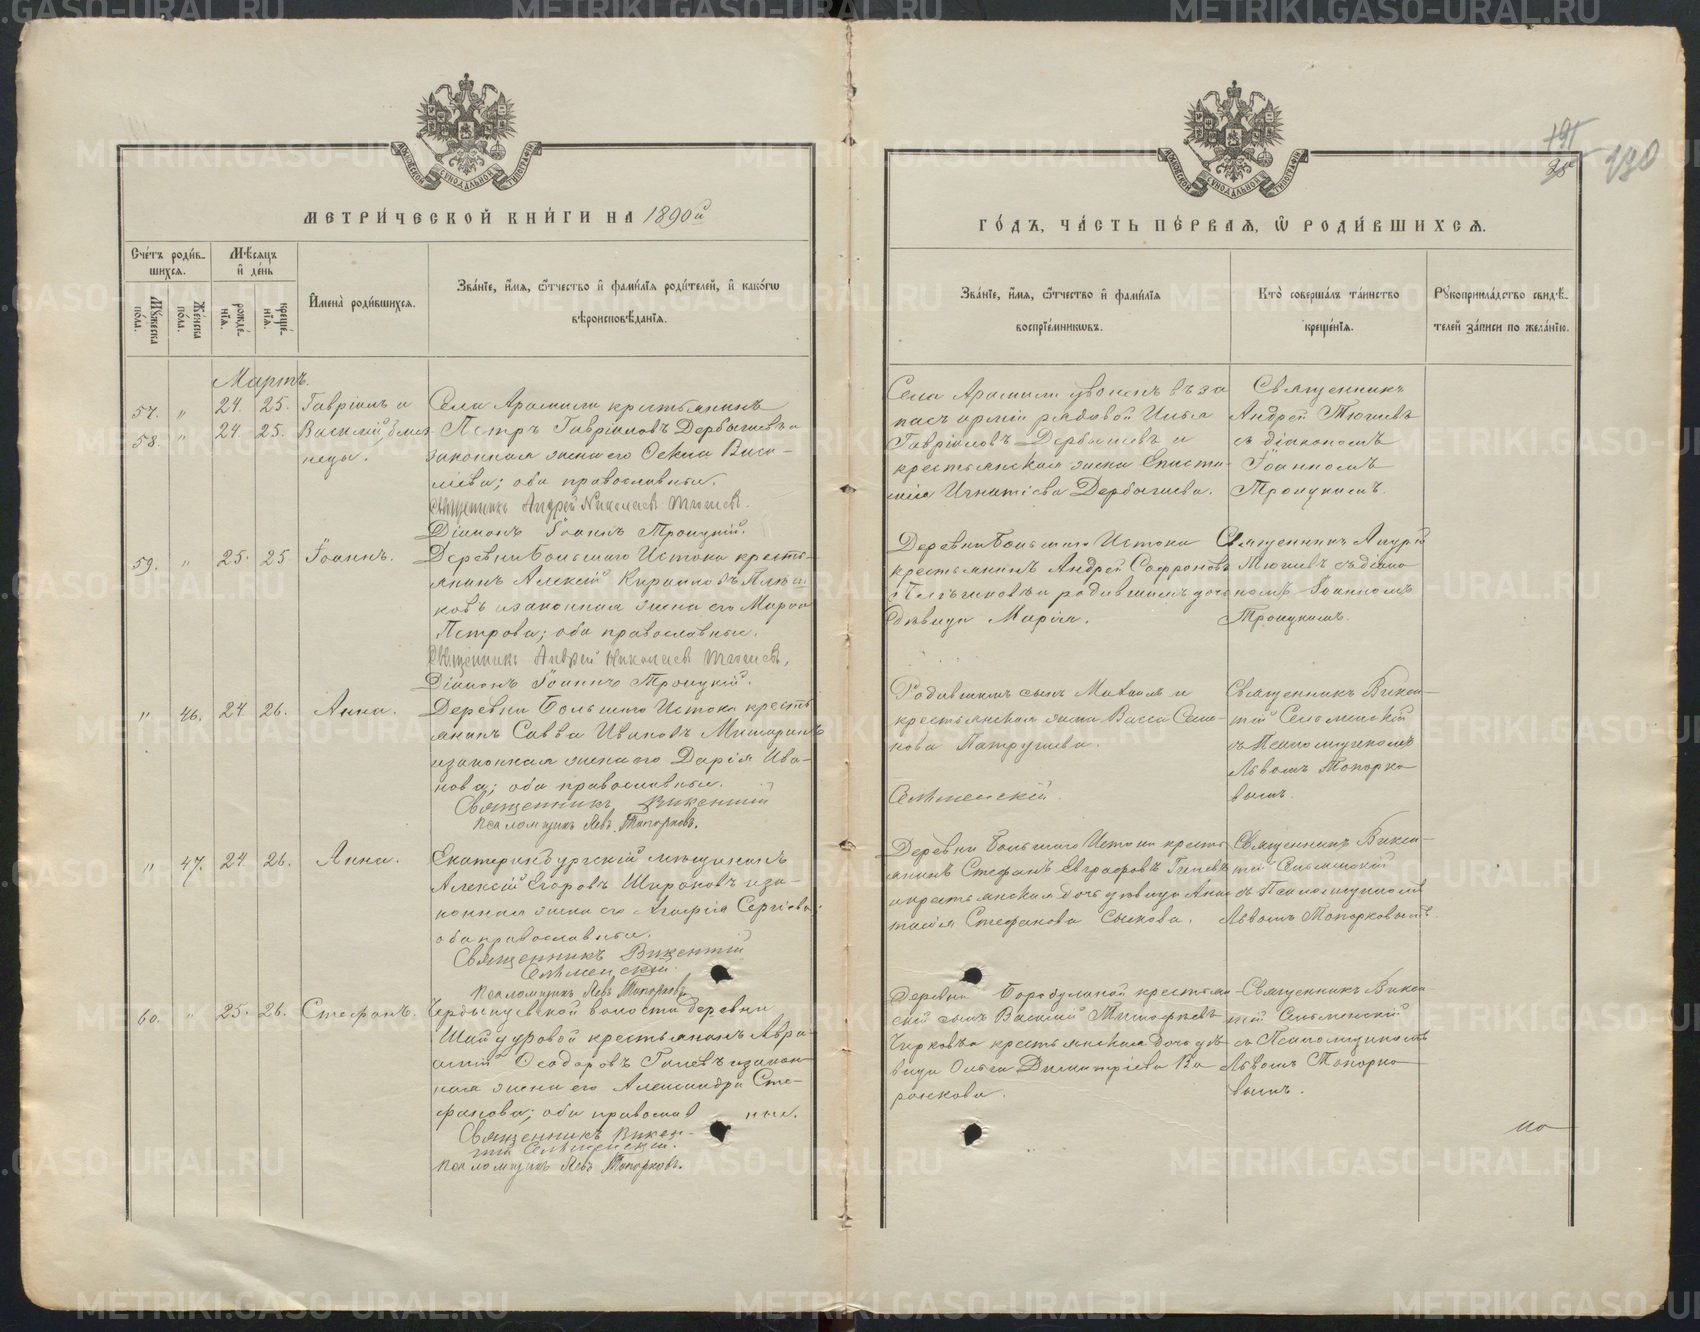 МЕТРИ́ЧЕСКОЙ КНИ́ГИ НА 1890й
Сче́тъ роди́в-
шихся.
Мѣ́сяцъ
и҆ де́нь
Му́жеска
по́ла.
Же́нска
по́ла.
рожде́-
нїѧ.
креще́-
нїѧ.
И҆мена̀ роди́вшихсѧ.
Зва́нїе, и҆́мѧ, ѻ҆́тчество и҆ фами́лїѧ роди́телей, и҆ како́гѡ
вѣроисповѣ́данїѧ.
Мартъ.
57. " 24. 25. Гавріилъ и
58. " 24. 25. Василій, близ-
нецы.
Села Арамили крестьянинъ
Петръ Гавріиловъ Дербышевъ и
законная жена его Оекла Васи-
ліева; оба православные.
Священникъ Андрей Николаевъ
Діаконъ Іоаннъ Троицкій.
59. " 25. 25 Іоаннъ.
Деревни Большаго Истока кресть-
янинъ Алексій Кирилловъ
и законная жена его Марѳа
Петрова; оба православные.
Священникъ Андрей Николаевъ
Діаконъ Іоаннъ Троицкій.
" 46. 24 26. Анна.
Деревни Большаго Истока кресть
янинъ Савва Ивановъ
и законная жена его Дарія Ива-
нова; оба православные.
Священникъ Викентій
Псаломщикъ Левъ Топорковъ.
" 47. 24 26. Анна.
Екатеринбургскій мѣщанинъ
Алексій Егоровъ Широковъ и за-
конная жена его Агафія Сергіева;
оба православные.
Священникъ Викентій
Сельменскій.
Псаломщикъ Левъ Топорковъ
60. " 25. 26. Стефанъ.
волости деревни
крестьянинъ Авра-
амій Ѳеодоровъ Гилевъ и закон-
ная жена его Александра Сте-
фанова; оба православ ные.
Священникъ Викен-
тій Сельменскій.
Псаломщикъ Левъ Топорковъ.
ГО́ДЪ, ЧА́СТЬ ПЕ́РВАѦ, Ѡ҆ РОДИ́ВШИХСѦ.
191
130
Зва́нїе, и҆́мѧ, ѻ҆́тчество и҆ фами́лїѧ
воспрїе́мникѡвъ.
Кто̀ соверша́лъ та́инство
креще́нїѧ.
Рꙋкоприкла́дство свидѣ́-
телей за́писи по жела́нїю.
Села Арамили уволенъ въ за
пасъ арміи рядовой Илья
Гавріиловъ Дербышевъ и
крестьянская жена Еписти-
мія Игнатіева Дербышева.
Священникъ
Андрей
съ діакономъ
Іоанномъ
Троицкимъ.
Деревни Большаго Истока
крестьянинъ Андрей Софроновъ
и родившимъ дочь
дѣвица Марія.
Священникъ Андрей
съ діако
номъ Іоанномъ
Троицкимъ.
Родившимъ сынъ Михаилъ и
крестьянская жена Васса Семе-
нова Патрушева.
Сельменскій.
Священникъ Викен-
тій Сельменскій
съ Псаломщикомъ
Львомъ Топорко
вымъ.
Деревни Большаго Истока кресть
янинъ Стефанъ Евграфовъ Гилевъ
и крестьянская дочь дѣвица Анас
тасія Стефанова Сыскова.
Священникъ Викен-
тій Сельменскій
съ Псаломщикомъ
Львомъ Топорковымъ.
Деревни Бородулиной крестьян
скій сынъ Василій Тимофѣевъ
Чирковъ и крестьянская дочь дѣ-
вица Ольга Димитріева Во
ронкова.
Священникъ Викен-
тій Сельменскій
съ Псаломщикомъ
Львомъ Топорко
вымъ.
METRIKI.GASO-URAL.RU